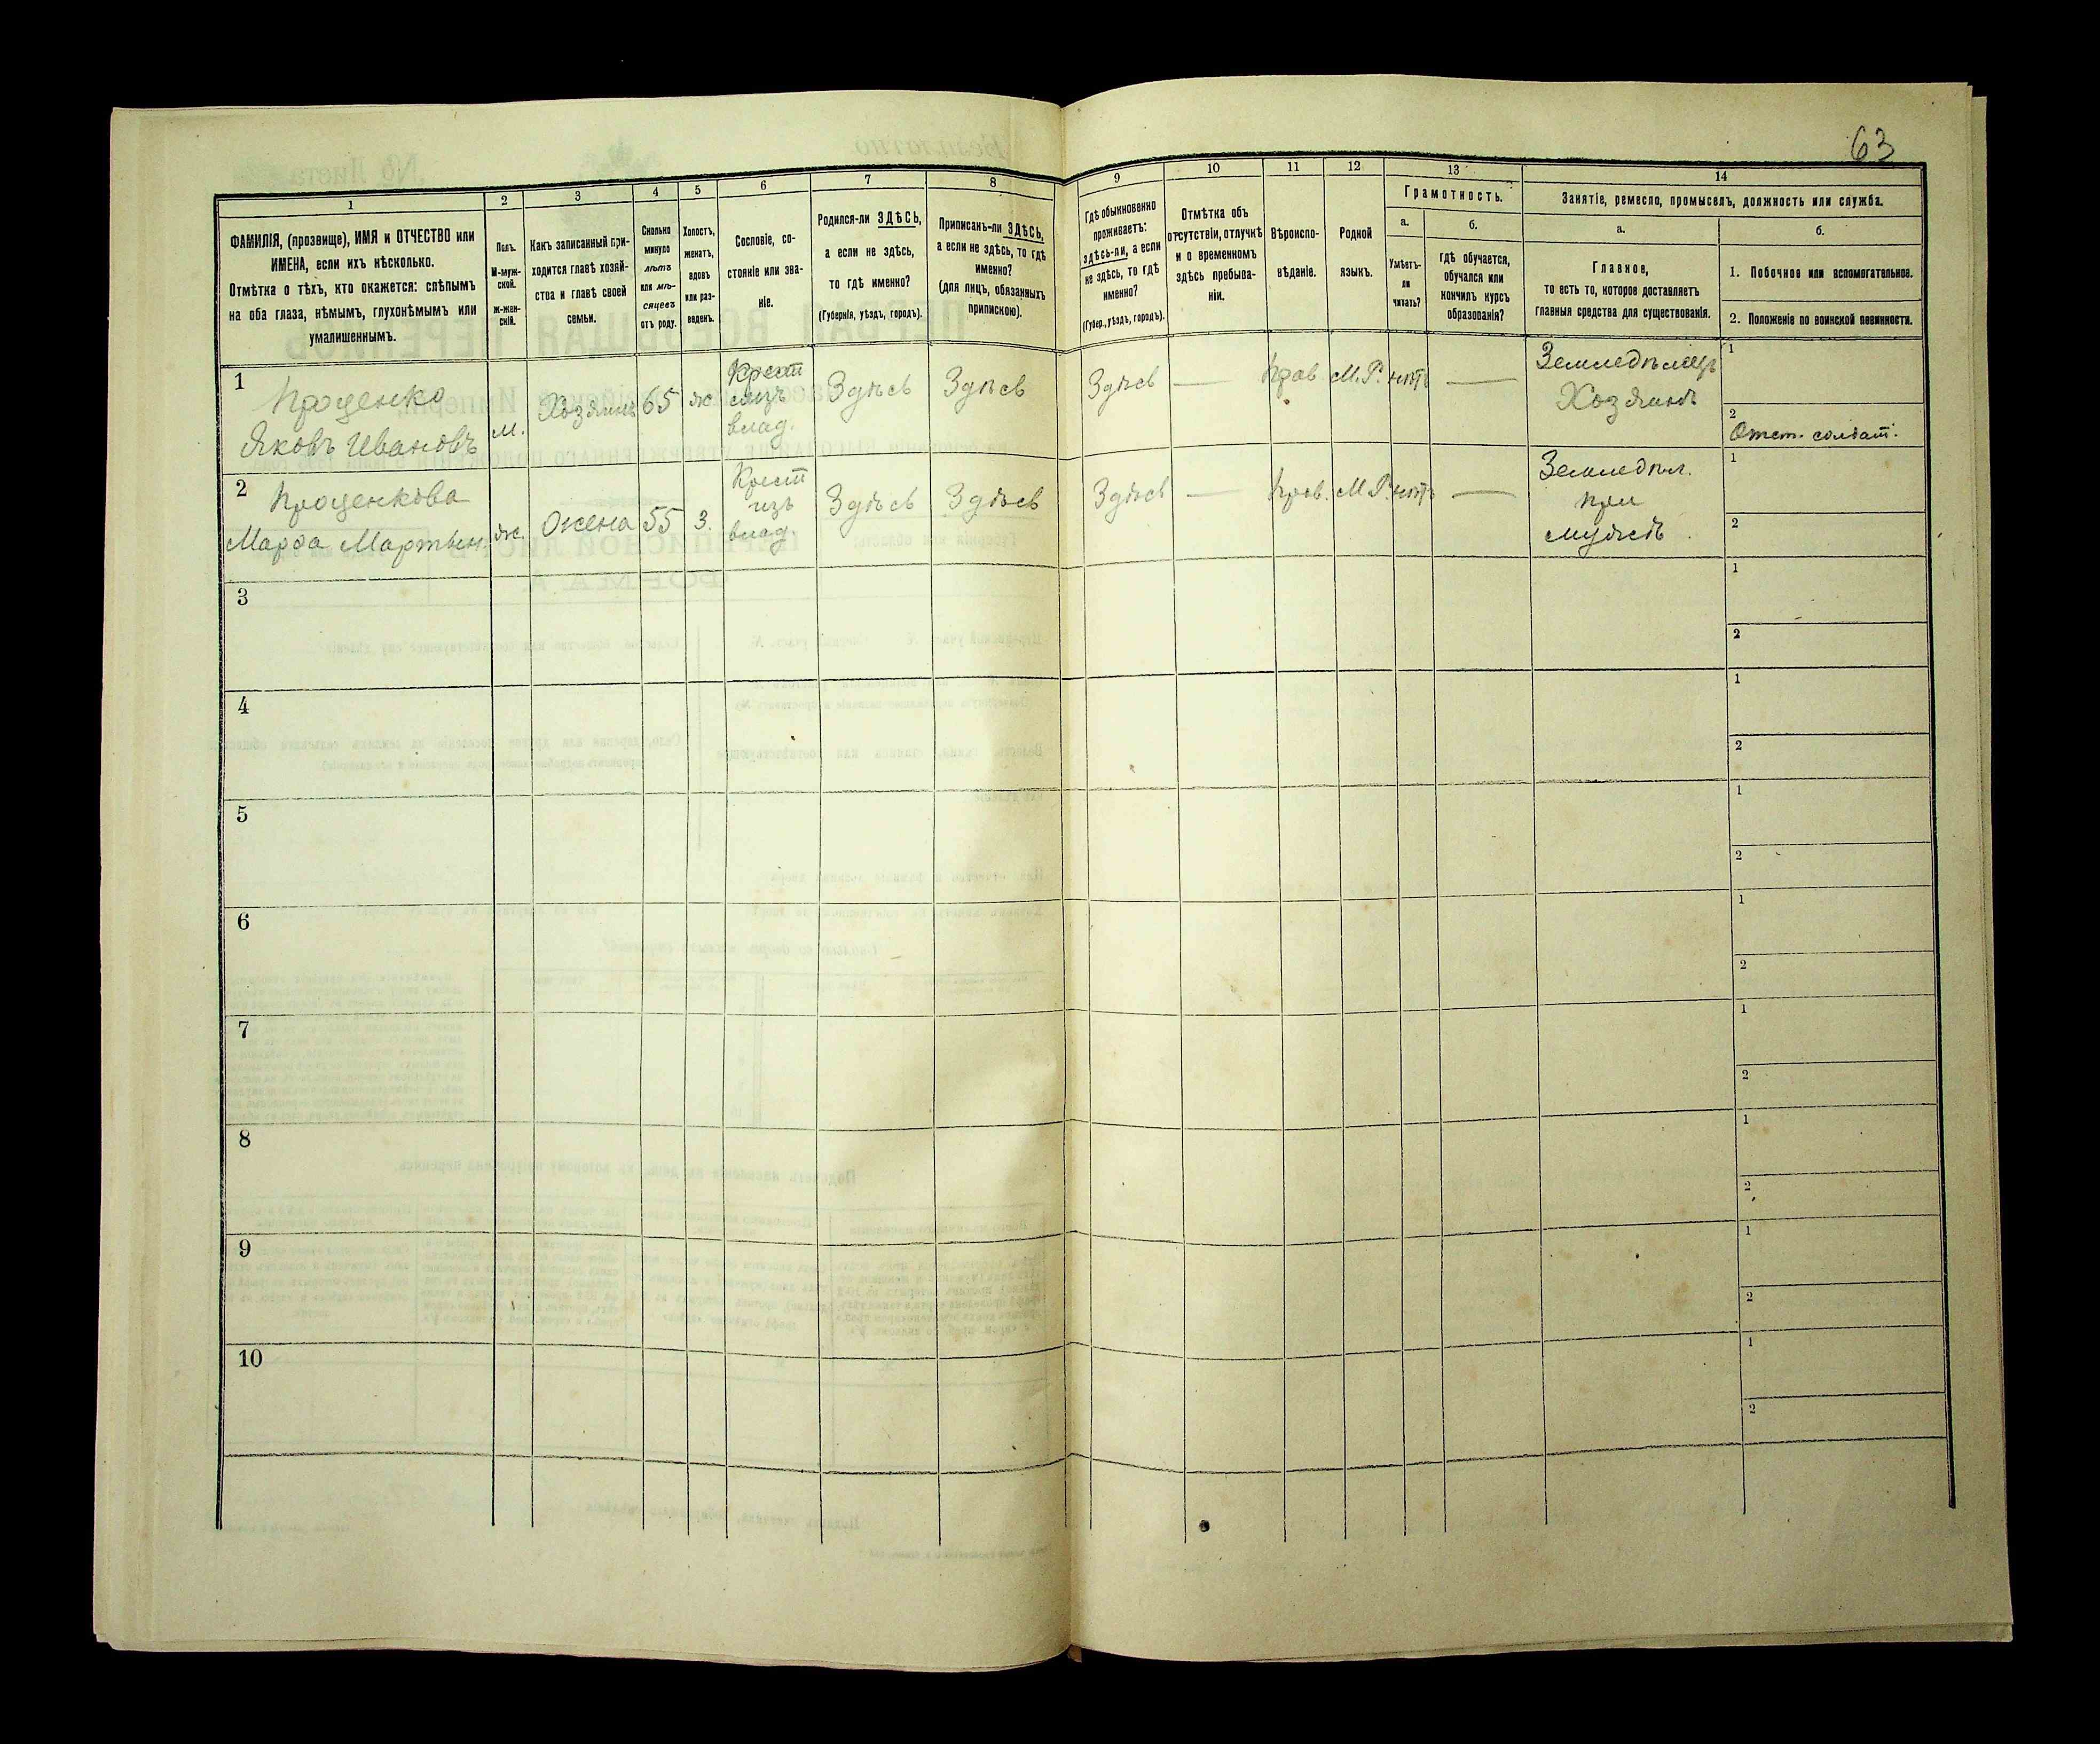 63
1
2
3
4
5
6
7
8
9
10
11
12
13
14
ФАМИЛІЯ, (прозвище), ИМЯ и ОТЧЕСТВО или
ИМЕНА, если ихъ нѣсколько.
Отмѣтка о тѣхъ, кто окажется: слѣпымъ
на оба глаза, нѣмымъ, глухонѣмымъ или
умалишеннымъ.
Полъ.
М-муж-
ской.
ж-жен-
скій.
Какъ записанный при-
ходится главѣ хозяй-
ства и главѣ своей
семьи.
Сколько
минуло
лѣтъ
или мѣ-
сяцевъ
отъ роду.
Холостъ,
женатъ,
вдовъ
или раз-
веденъ.
Сословіе, со-
стояніе или зва-
ніе.
Родился-ли ЗДѢСЬ,
а если не здѣсь,
то гдѣ именно?
(Губернія, уѣздъ, городъ).
Приписанъ-ли ЗДѢСЬ,
а если не здѣсь, то гдѣ
именно?
(для лицъ, обязанныхъ
припискою).
Гдѣ обыкновенно
проживаетъ:
здѣсь-ли, а если
не здѣсь, то гдѣ
именно?
(Губер., уѣздъ, городъ).
Отмѣтка объ
отсутствіи, отлучкѣ
и о временномъ
здѣсь пребыва-
ніи.
Вѣроиспо-
вѣданіе.
Родной
языкъ.
Грамотность.
а.
Умѣетъ-
ли
читать?
б.
гдѣ обучается,
обучался или
кончилъ курсъ
образованія?
Занятіе, ремесло, промыселъ, должность или служба.
а.
Главное,
то есть то, которое доставляетъ
главныя средства для существованія.
б.
1. Побочное или вспомогательное.
2. Положеніе по воинской повинности.
1
Проценко
Яковъ Ивановъ
м.
Хозяинъ
65
ж
Крест
изъ
влад.
Здѣсь
Здѣсь
Здѣсь
—
Прав
М.Р.
нѣтъ
—
Земледѣлецъ
Хозяинъ
1
2
Отст. солдат.
2
Проценкова
Марфа Мартын.
ж.
Жена
55
З.
Крест
изъ
влад.
Здѣсь
Здѣсь
Здѣсь
—
Прав.
М.Р.
нѣтъ
—
Земледѣл.
при
мужѣ
1
2
3
1
2
4
1
2
5
1
2
6
1
2
7
1
2
8
1
2
9
1
2
10
1
2